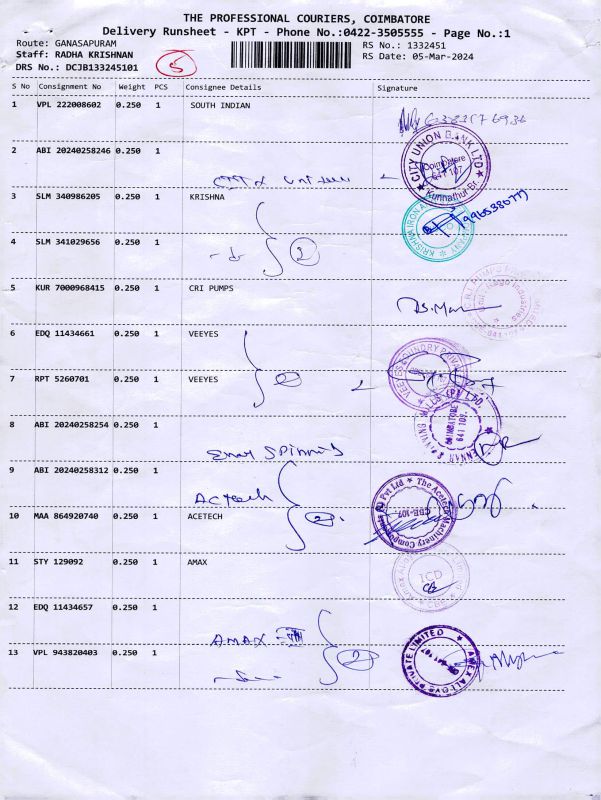 THE PROFESSIONAL COURIERS, COIMBATORE
Delivery Runsheet - KPT - Phone No.:0422-3505555 - Page No.:1
Route: GANASAPURAM RS No.: 1332451
Staff: RADHA KRISHNAN 5 RS Date: 05-Mar-2024
DRS No.: DCJB133245101
S No Consignment No Weight PCS Consignee Details Signature
1 VPL 222008602 0.250 1 SOUTH INDIAN
2 ABI 20240258246 0.250 1
CITY UNION BANK LTD Coimbatore 641 107 Kunnathur Br.
3 SLM 340986205 0.250 1 KRISHNA
9965380777
4 SLM 341029656 0.250 1
2
5 KUR 7000968415 0.250 1 CRI PUMPS
6 EDQ 11434661 0.250 1 VEEYES
7 RPT 5260701 0.250 1 VEEYES
2
8 ABI 20240258254 0.250 1
COIMBATORE 641 107.
Spinning
9 ABI 20240258312 0.250 1
Actech
The Acetech Machinery Components (I) Pvt Ltd CBE-107.
10 MAA 864920740 0.250 1 ACETECH
2
11 STY 129092 0.250 1 AMAX
ICD
12 EDQ 11434657 0.250 1
AMAX
13 VPL 943820403 0.250 1
2
AMEX ALLOYS PRIVATE LIMITED